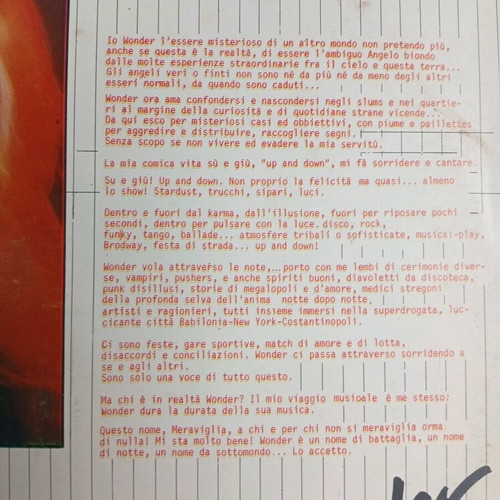 Io Wonder l'essere misterioso di un altro mondo non pretendo più,
anche se questa è la realtà, di essere l'ambiguo Angelo biondo
dalle molte esperienze straordinarie fra il cielo e questa terra...
Gli angeli veri o finti non sono né da più né da meno degli altri
esseri normali, da quando sono caduti...
Wonder ora ama confondersi e nascondersi negli slums e nei quartie-
ri al margine della curiosità e di quotidiane strane vicende...
Da qui esco per misteriosi casi ed obbiettivi, con piume e paillettes
per aggredire e distribuire, raccogliere segni.
Senza scopo se non vivere ed evadere la mia servitù.
La mia comica vita sù e giù, "up and down", mi fà sorridere e cantare.
Su e giù! Up and down. Non proprio la felicità ma quasi... almeno
lo show! Stardust, trucchi, sipari, luci.
Dentro e fuori dal karma, dall'illusione, fuori per riposare pochi
secondi, dentro per pulsare con la luce. disco, rock,
funky, tango, ballade... atmosfere tribali o sofisticate, musical-play,
Brodway, festa di strada... up and down!
Wonder vola attraverso le note,... porto con me lembi di cerimonie diver-
se, vampiri, pushers, e anche spiriti buoni, diavoletti da discoteca,
punk disillusi, storie di megalopoli e d'amore, medici stregoni
della profonda selva dell'anima notte dopo notte,
artisti e ragionieri, tutti insieme immersi nella superdrogata, luc-
cicante città Babilonia-New York-Costantinopoli.
Ci sono feste, gare sportive, match di amore e di lotta,
disaccordi e conciliazioni. Wonder ci passa attraverso sorridendo a
se e agli altri.
Sono solo una voce di tutto questo.
Ma chi è in realtà Wonder? Il mio viaggio musicale è me stesso:
Wonder dura la durata della sua musica.
Questo nome, Meraviglia, a chi e per chi non si meraviglia orma
di nulla! Mi sta molto bene! Wonder è un nome di battaglia, un nome
di notte, un nome da sottomondo... Lo accetto.